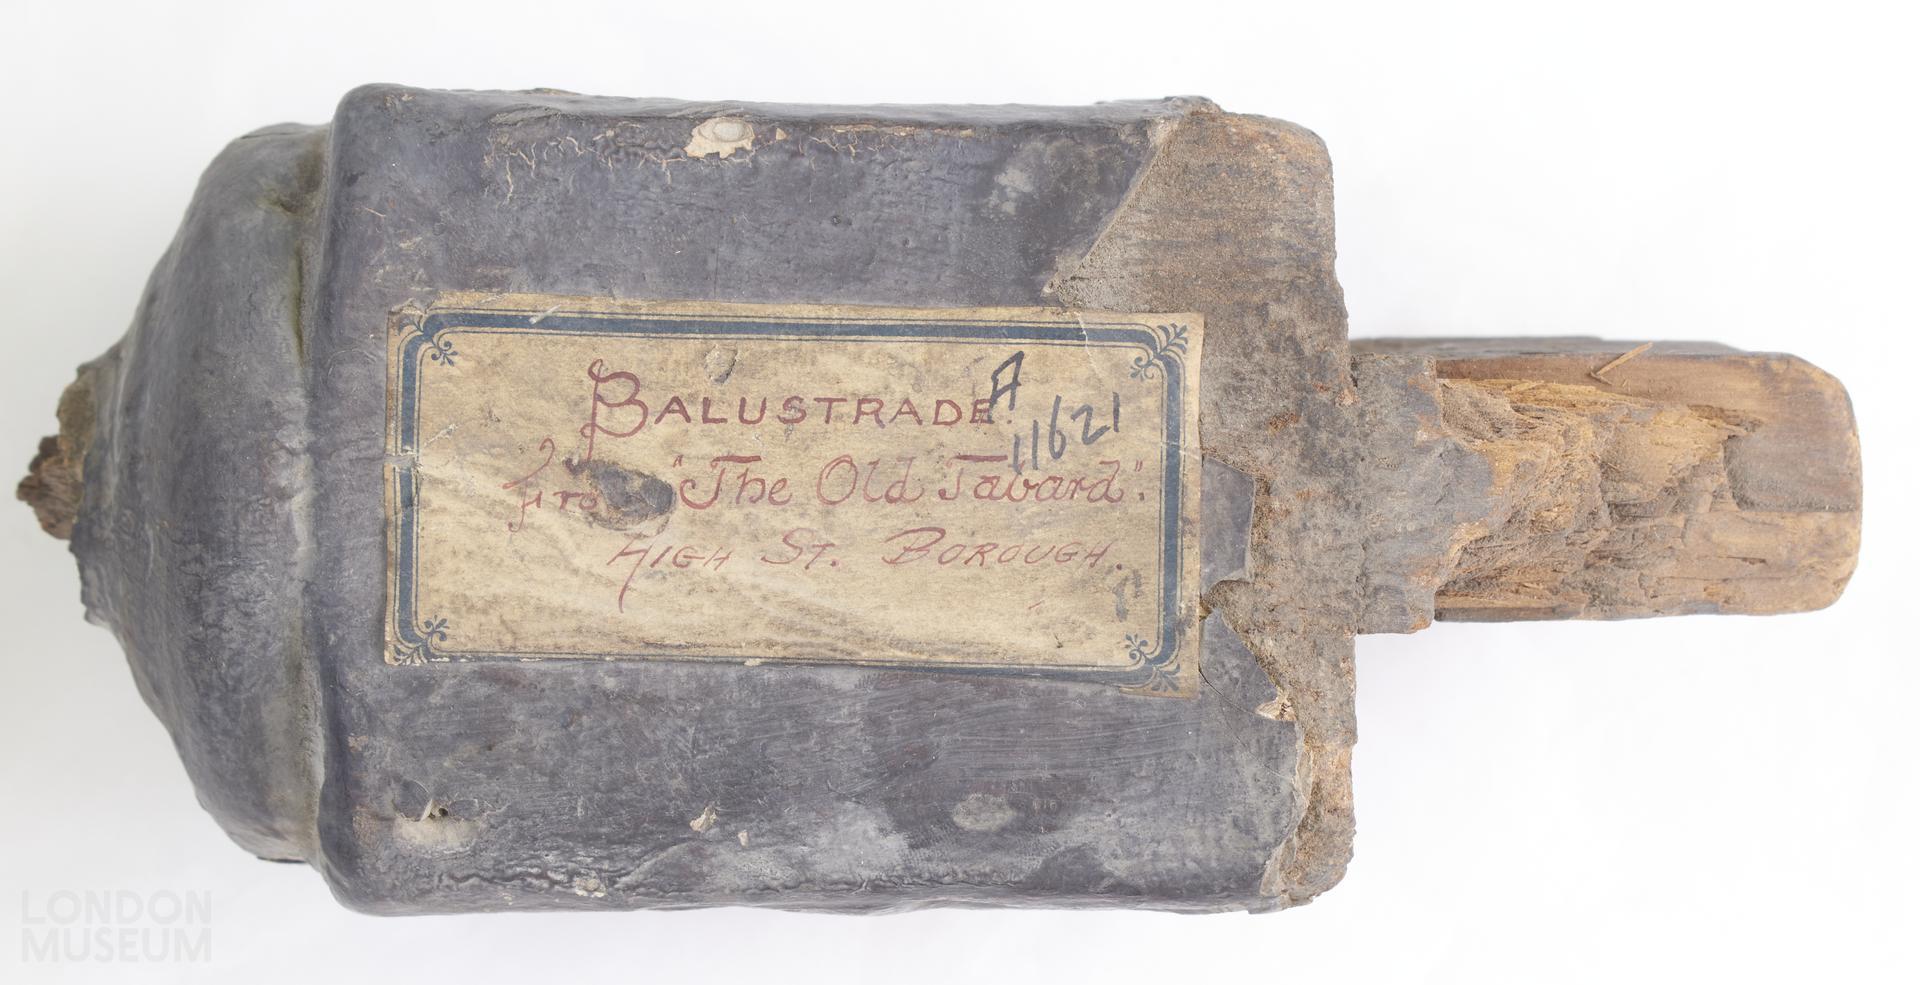 BALUSTRADE. A
11621
"The Old Tabard".
HIGH ST. BOROUGH.
LONDON
MUSEUM